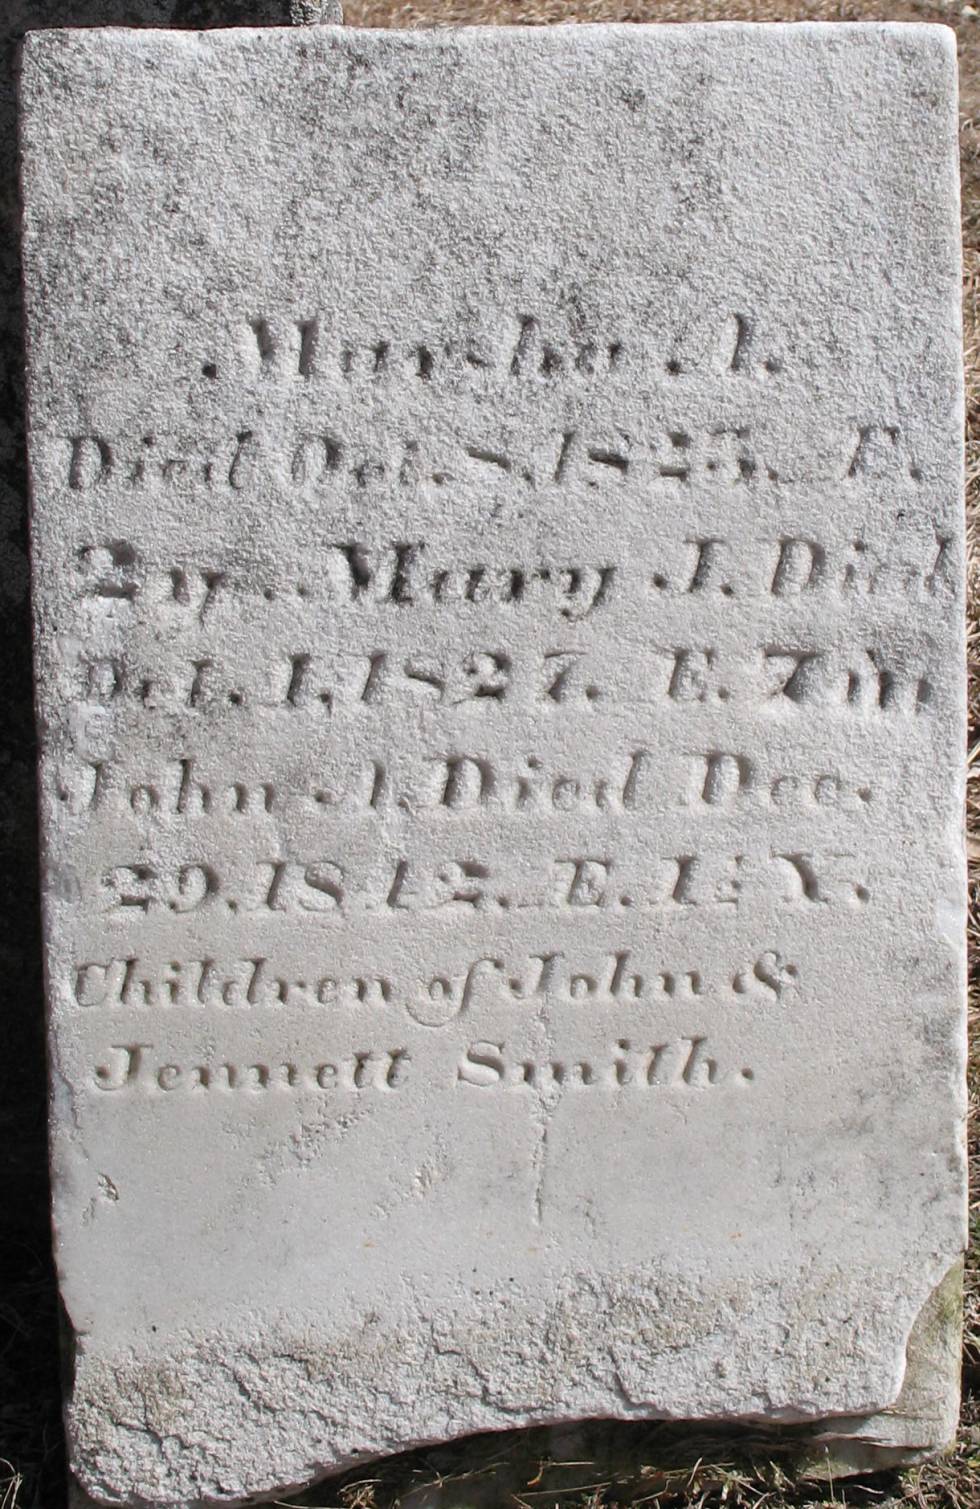 Marsha A.
Died Oct. 8, 1825. E.
2y. Mary J. Died
Oct. 1, 1827. E. 7m
John A. Died Dec.
29, 1842. E. Y.
Children of John &
Jennett Smith.